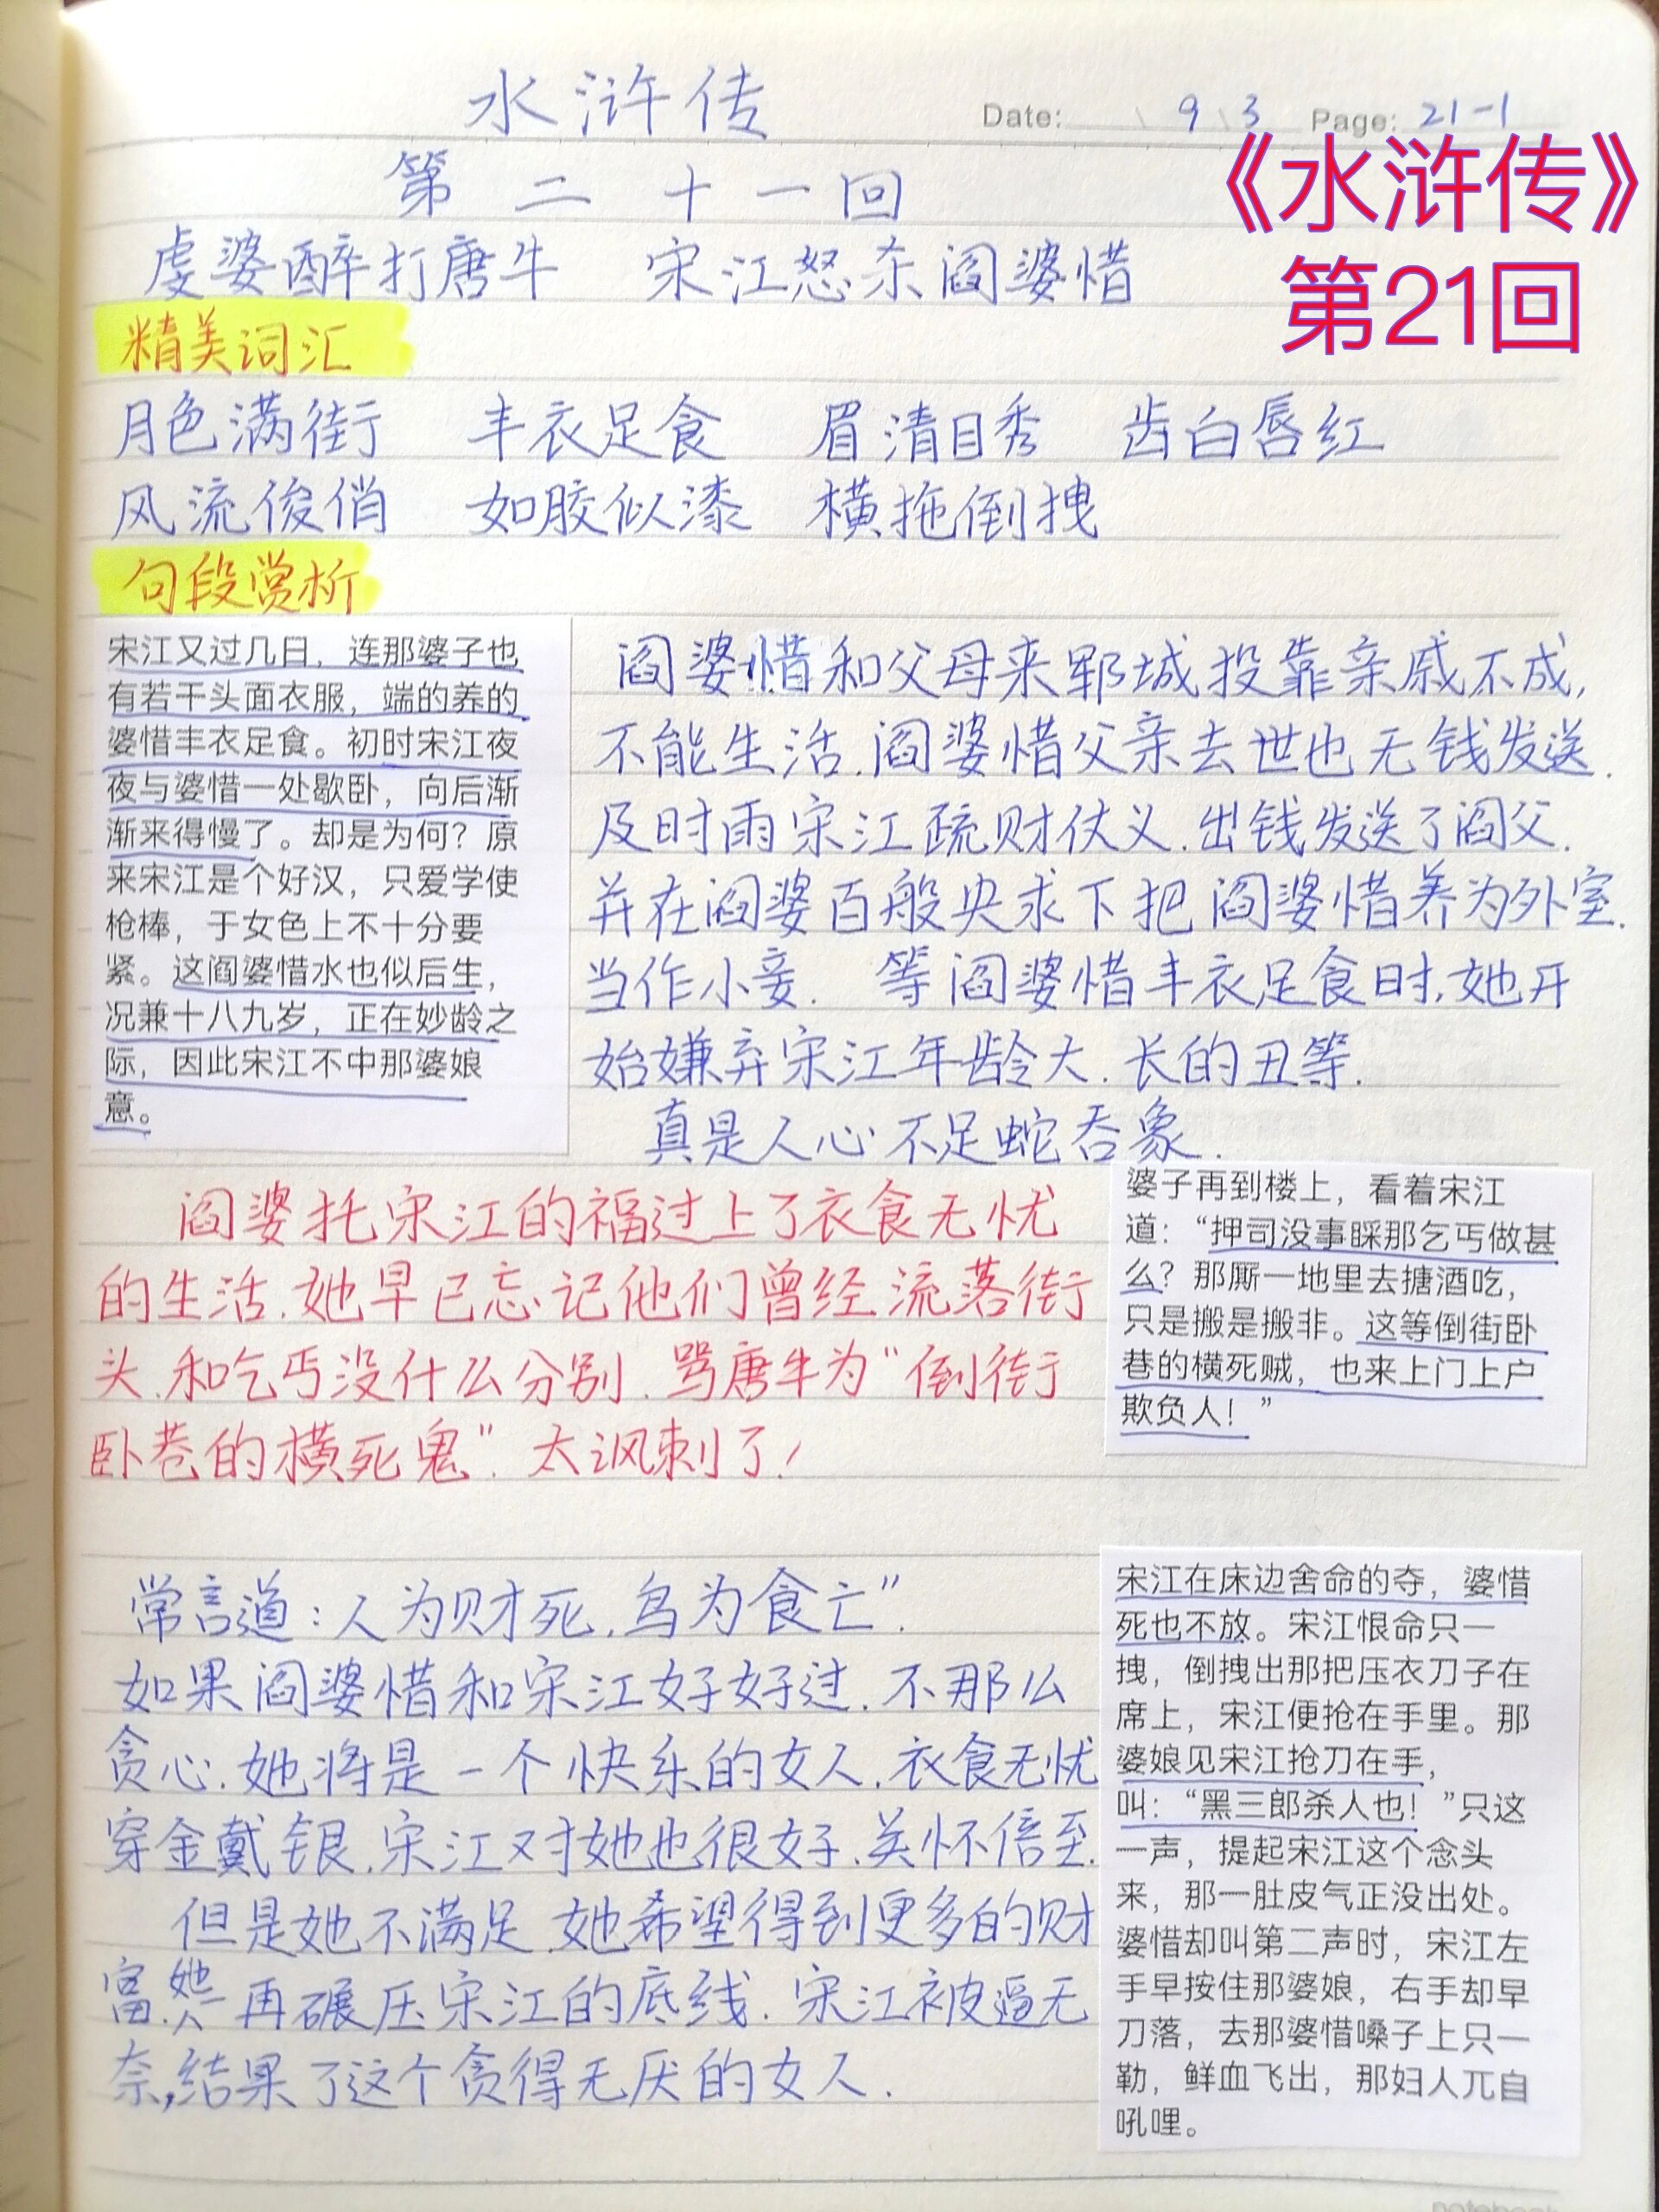 水浒传
Date: 9 3 Page: 21-1
《水浒传》
第21回
第二十一回
虔婆醉打唐牛 宋江怒杀阎婆惜
精美词汇
月色满街 丰衣足食 眉清目秀 齿白唇红
风流俊俏 如胶似漆 横拖倒拽
句段赏析
宋江又过几日，连那婆子也
有若干头面衣服，端的养的
婆惜丰衣足食。初时宋江夜
夜与婆惜一处歇卧，向后渐
渐来得慢了。却是为何？原
来宋江是个好汉，只爱学使
枪棒，于女色上不十分要
紧。这阎婆惜水也似后生，
况兼十八九岁，正在妙龄之
际，因此宋江不中那婆娘
意。
阎婆惜和父母来郓城投靠亲戚不成，
不能生活.阎婆惜父亲去世也无钱发送.
及时雨宋江疏财仗义.出钱发送了阎父.
并在阎婆百般央求下把阎婆惜养为外室.
当作小妾. 等阎婆惜丰衣足食时,她开
始嫌弃宋江年龄大.长的丑等.
真是人心不足蛇吞象.
阎婆托宋江的福过上了衣食无忧
的生活.她早已忘记他们曾经流落街
头.和乞丐没什么分别.骂唐牛为“倒街
卧巷的横死鬼”.太讽刺了!
婆子再到楼上，看着宋江
道：“押司没事睬那乞丐做甚
么？那厮一地里去搪酒吃，
只是搬是搬非。这等倒街卧
巷的横死贼，也来上门上户
欺负人！”
常言道:人为财死.鸟为食亡”.
如果阎婆惜和宋江好好过.不那么
贪心.她将是一个快乐的女人.衣食无忧
穿金戴银.宋江对她也很好.关怀倍至.
但是她不满足.她希望得到更多的财
富.她一再碾压宋江的底线.宋江被逼无
奈,结果了这个贪得无厌的女人.
宋江在床边舍命的夺，婆惜
死也不放。宋江恨命只一
拽，倒拽出那把压衣刀子在
席上，宋江便抢在手里。那
婆娘见宋江抢刀在手，
叫：“黑三郎杀人也！”只这
一声，提起宋江这个念头
来，那一肚皮气正没出处。
婆惜却叫第二声时，宋江左
手早按住那婆娘，右手却早
刀落，去那婆惜嗓子上只一
勒，鲜血飞出，那妇人兀自
吼哩。